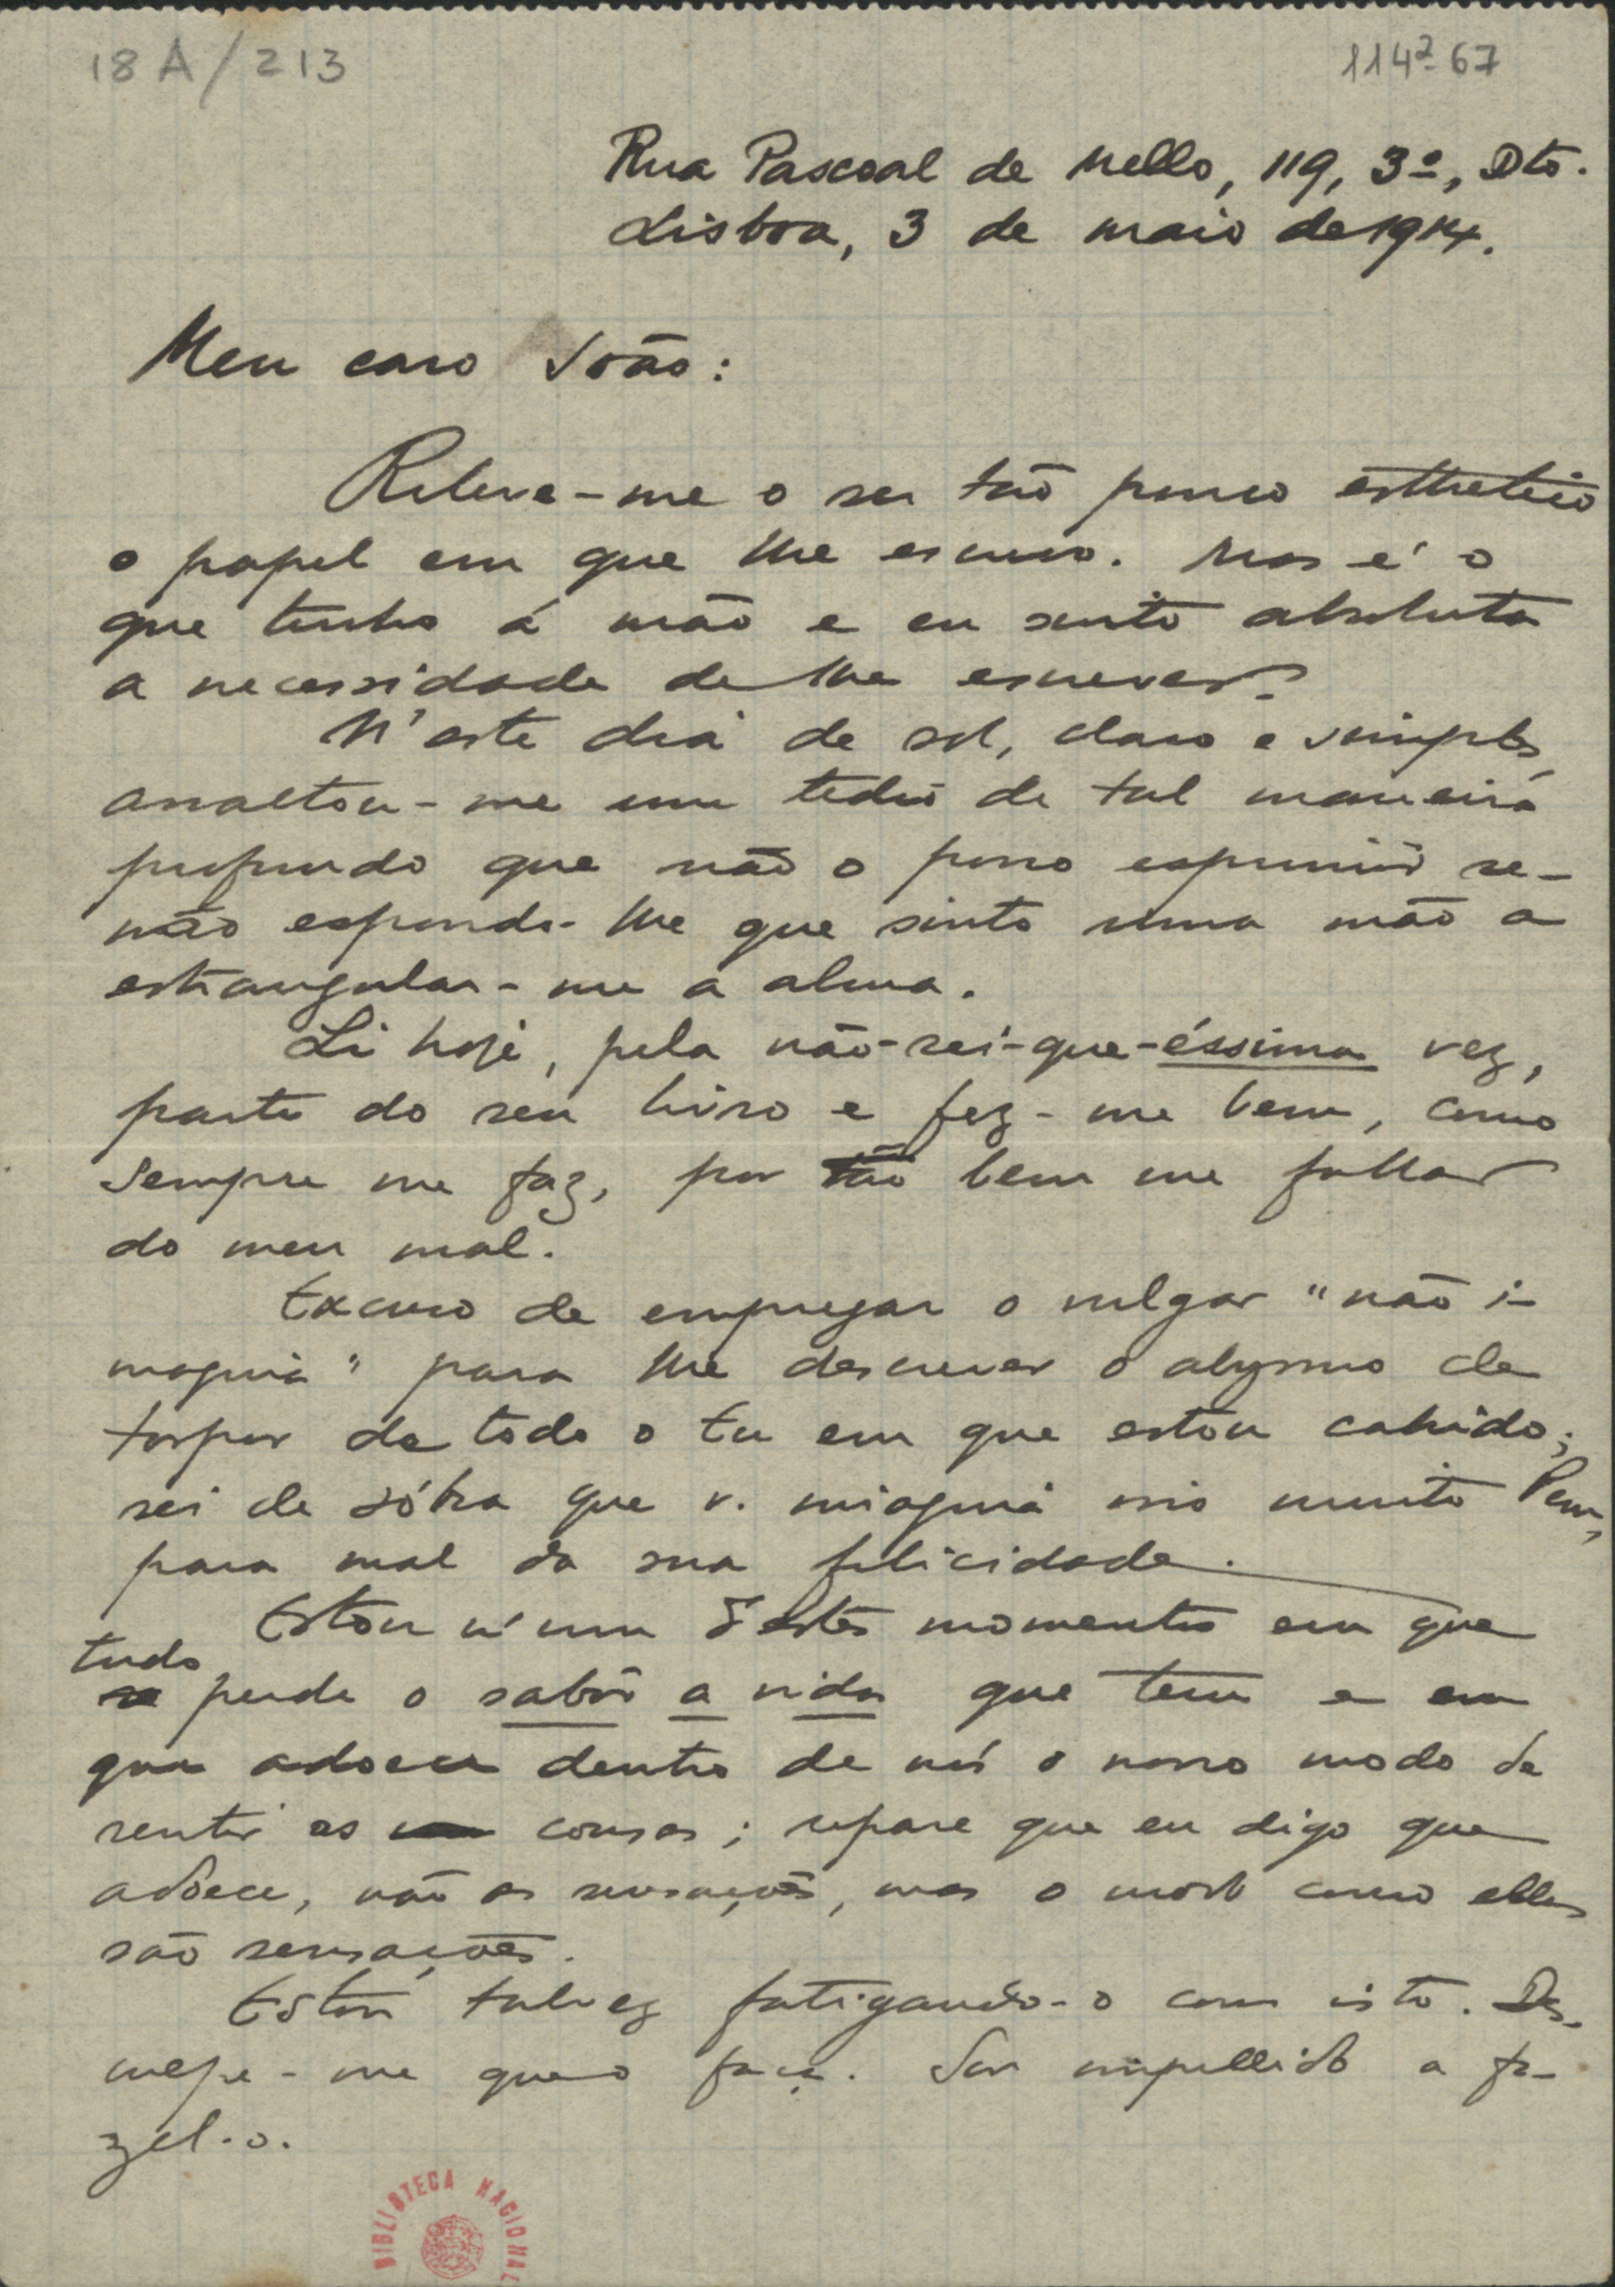 18 A/213
114²-67
Rua Pascoal de Mello, 119, 3º, Dto.
Lisboa, 3 de maio de 1914.
Meu caro João:
Releve-me o ser tão pouco esthetico
o papel em que lhe escrevo. Mas é o
que tenho á mão e eu sinto absoluta
a necessidade de lhe escrever.
N'este dia de sol, claro e simples,
assaltou-me um tedio de tal maneira
profundo que não o posso exprimir se-
não expondo-lhe que sinto uma mão a
estrangular-me a alma.
Li hoje, pela não-sei-que-éssima vez,
parte do seu livro e fez-me bem, como
sempre me faz, por tão bem me fallar
do meu mal.
Excuso de empregar o vulgar "não i-
magina" para lhe descrever o abysmo de
torpor de todo o Eu em que estou cahido;
sei de sóbra que v. imagina isso muito bem,
para mal da sua felicidade.
Estou n'um d'estes momentos em que
tudo
se perde o sabôr a vida que tem e em
que adoece dentro de nós o nosso modo de
sentir as cousas; repare que eu digo que
adoece, não as sensações, mas o modo como ellas
são sensações.
Estou talvez fatigando-o com isto. Des-
culpe-me que o faça. Sou impellido a fa-
zel-o.
BIBLIOTECA NACIONAL